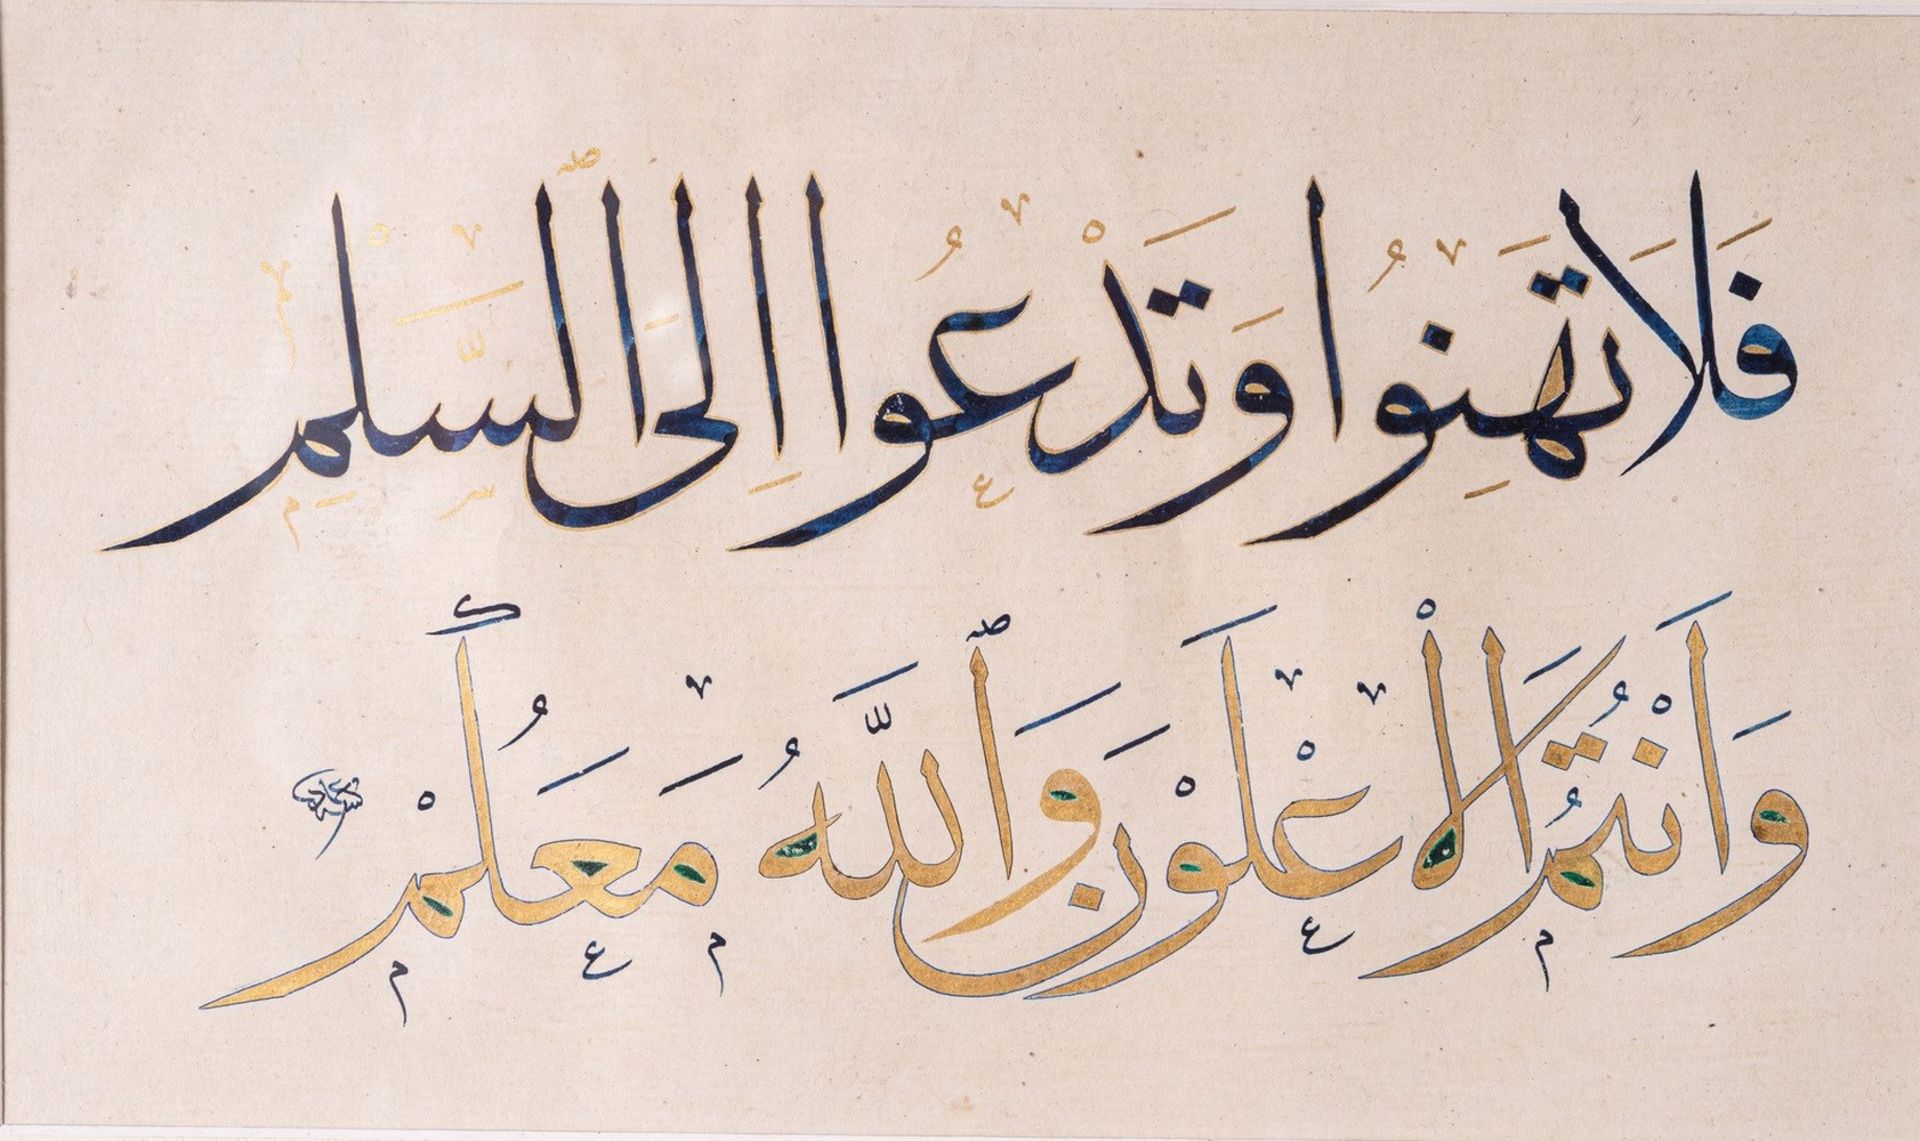 فَلَا تَهِنُوا وَتَدْعُوا اِلَى السَّلْمِ
وَاَنْتُمُ الْاَعْلَوْنَ وَاللّٰهُ مَعَكُمْ